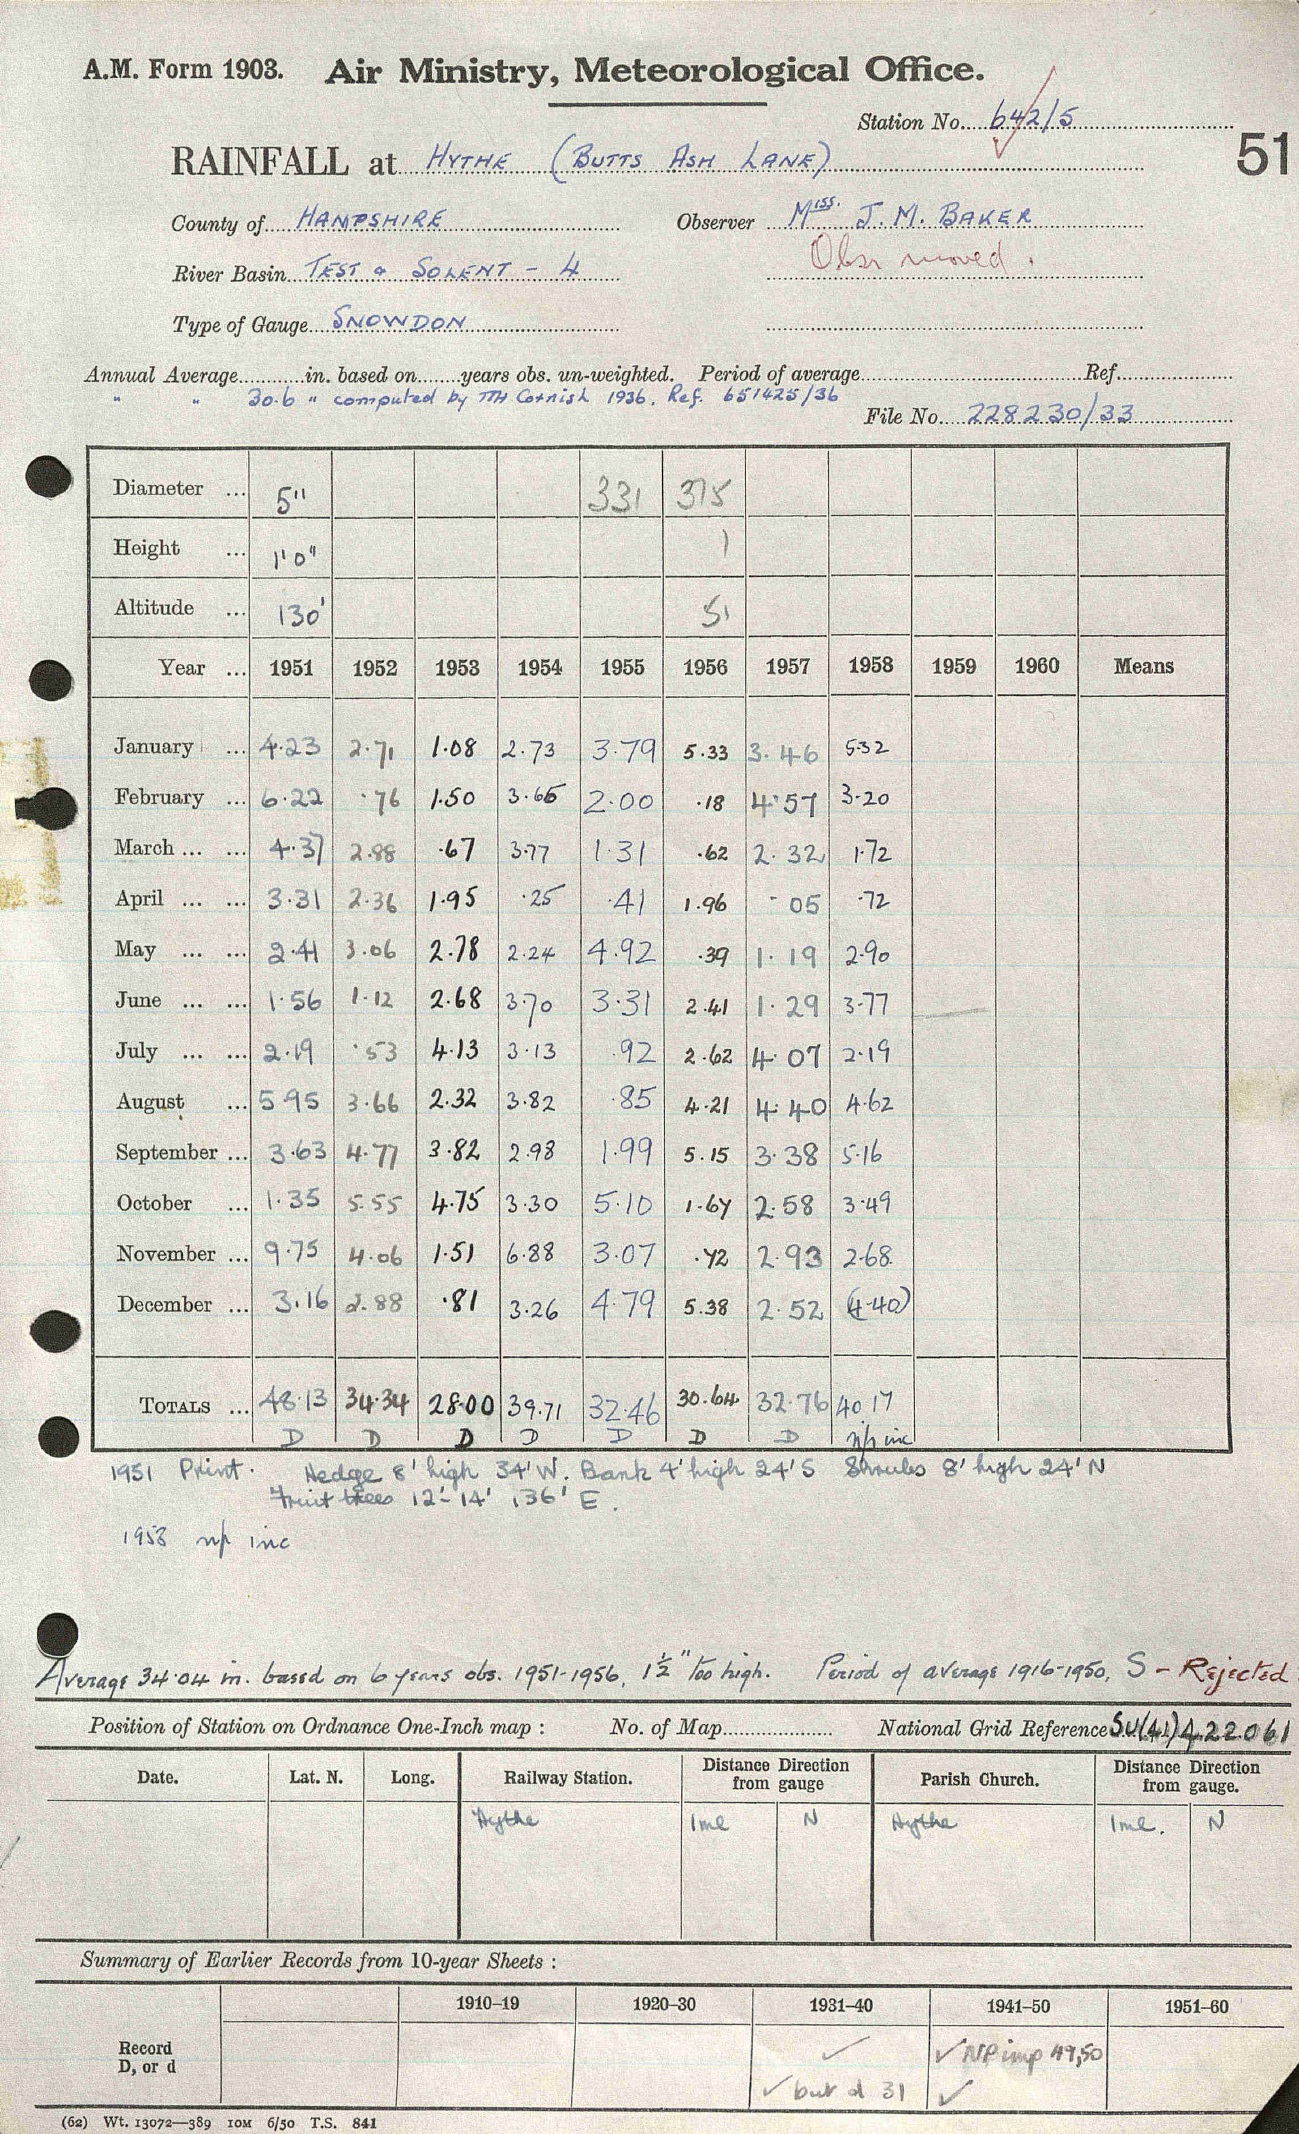 A.M. Form 1903. Air Ministry, Meteorological Office.
Station No. 642/5
51
RAINFALL at HYTHE (BUTTS ASH LANE)
County of HAMPSHIRE Observer Miss. J. M. BAKER
River Basin TEST & SOLENT - 4 Obsr moved.
Type of Gauge SNOWDON
Annual Average............in. based on........years obs. un-weighted. Period of average............Ref............
" " 30.6 " computed by TH Cornish 1936. Ref. 651425/36
File No. 228230/33
Diameter ... 5" 331 315
Height ... 1'0" 1
Altitude ... 130' 51
Year ... 1951 1952 1953 1954 1955 1956 1957 1958 1959 1960 Means
January ... 4.23 2.71 1.08 2.73 3.79 5.33 3.46 5.32
February ... 6.22 .76 1.50 3.65 2.00 .18 4.57 3.20
March ... ... 4.37 2.88 .67 3.77 1.31 .62 2.32 1.72
April ... ... 3.31 2.36 1.95 .25 .41 1.96 .05 .72
May ... ... 2.41 3.06 2.78 2.24 4.92 .39 1.19 2.90
June ... ... 1.56 1.12 2.68 3.70 3.31 2.41 1.29 3.77
July ... ... 2.19 .53 4.13 3.13 .92 2.62 4.07 2.19
August ... 5.95 3.66 2.32 3.82 .85 4.21 4.40 4.62
September ... 3.63 4.77 3.82 2.98 1.99 5.15 3.38 5.16
October ... 1.35 5.55 4.75 3.30 5.10 1.67 2.58 3.49
November ... 9.75 4.06 1.51 6.88 3.07 .72 2.93 2.68
December ... 3.16 2.88 .81 3.26 4.79 5.38 2.52 (4.40)
TOTALS ... 48.13 34.34 28.00 39.71 32.46 30.64 32.76 40.17
D D D D D D D np inc
1951 Print. Hedge 8' high 34' W. Bank 4' high 24' S Shrubs 8' high 24' N
Fruit trees 12'-14' 136' E.
1958 np inc
Average 34.04 in. based on 6 years obs. 1951-1956, 1½" too high. Period of average 1916-1950, S - Rejected
Position of Station on Ordnance One-Inch map : No. of Map............ National Grid Reference SU(41)422061
Date. Lat. N. Long. Railway Station. Distance from gauge Direction Parish Church. Distance from gauge. Direction
Hythe 1ml N Hythe 1ml. N
Summary of Earlier Records from 10-year Sheets :
1910–19 1920–30 1931–40 1941–50 1951–60
Record D, or d ✓ ✓ NP imp 49,50
✓ but d 31 ✓
(62) Wt. 13072—389 10M 6/50 T.S. 841